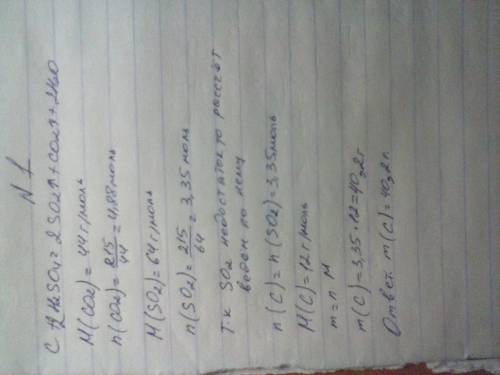 N 1
C+2H2SO4=2SO2↑+CO2↑+2H2O
M(CO2)=44 г/моль
n(CO2)=215/44=4,88 моль
M(SO2)=64 г/моль
n(SO2)=215/64=3,35 моль
Т.к SO2 недостаток то рассчёт
ведем по нему
n(C)=n(SO2)=3,35 моль
M(C)=12 г/моль
m=n M
m(C)=3,35·12=40,2 г
Ответ: m(C)=40,2 г.